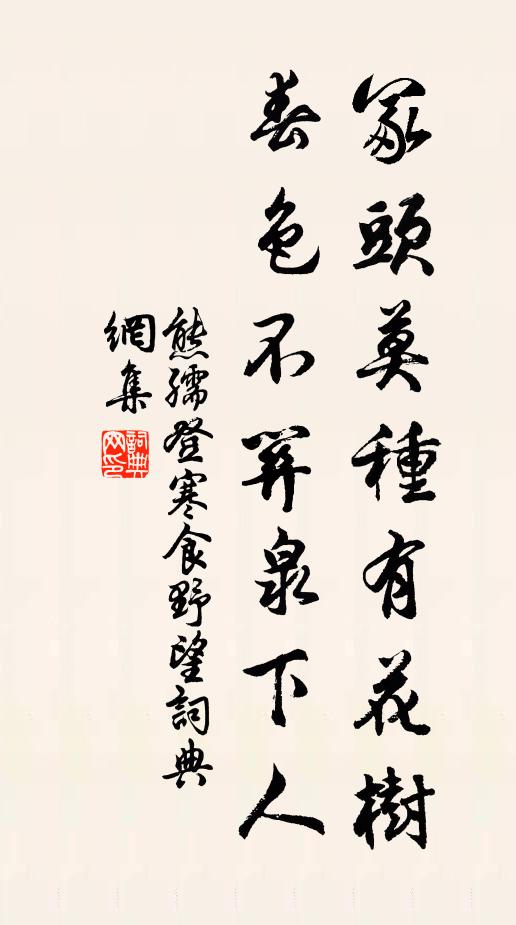 冢頭莫種有花樹
春色不關泉下人
熊孺登寒食野望詞典
網集
詞典網印